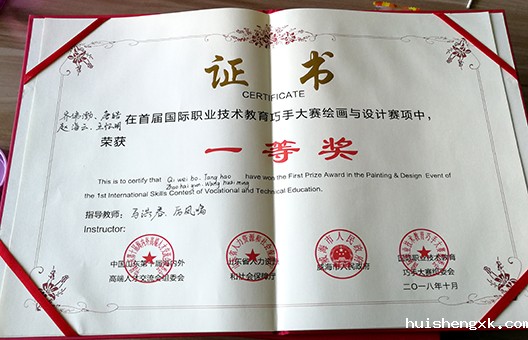 证 书
CERTIFICATE
在首届国际职业技术教育巧手大赛绘画与设计赛项中，
赵海云、王怀明
荣获
一等奖
This is to certify that Qi wei bo、Tang hao have won the First Prize Award in the Painting & Design Event of
Zhao hai yun、Wang huai ming
the 1st International Skills Contest of Vocational and Technical Education.
指导教师：
Instructor:
中国山东第十届海内外
高端人才交流会组委会
山东省人力资源
和社会保障厅
威海市人民政府
国际职业技术教育
巧手大赛组委会
二〇一八年十月
huishengxk.com